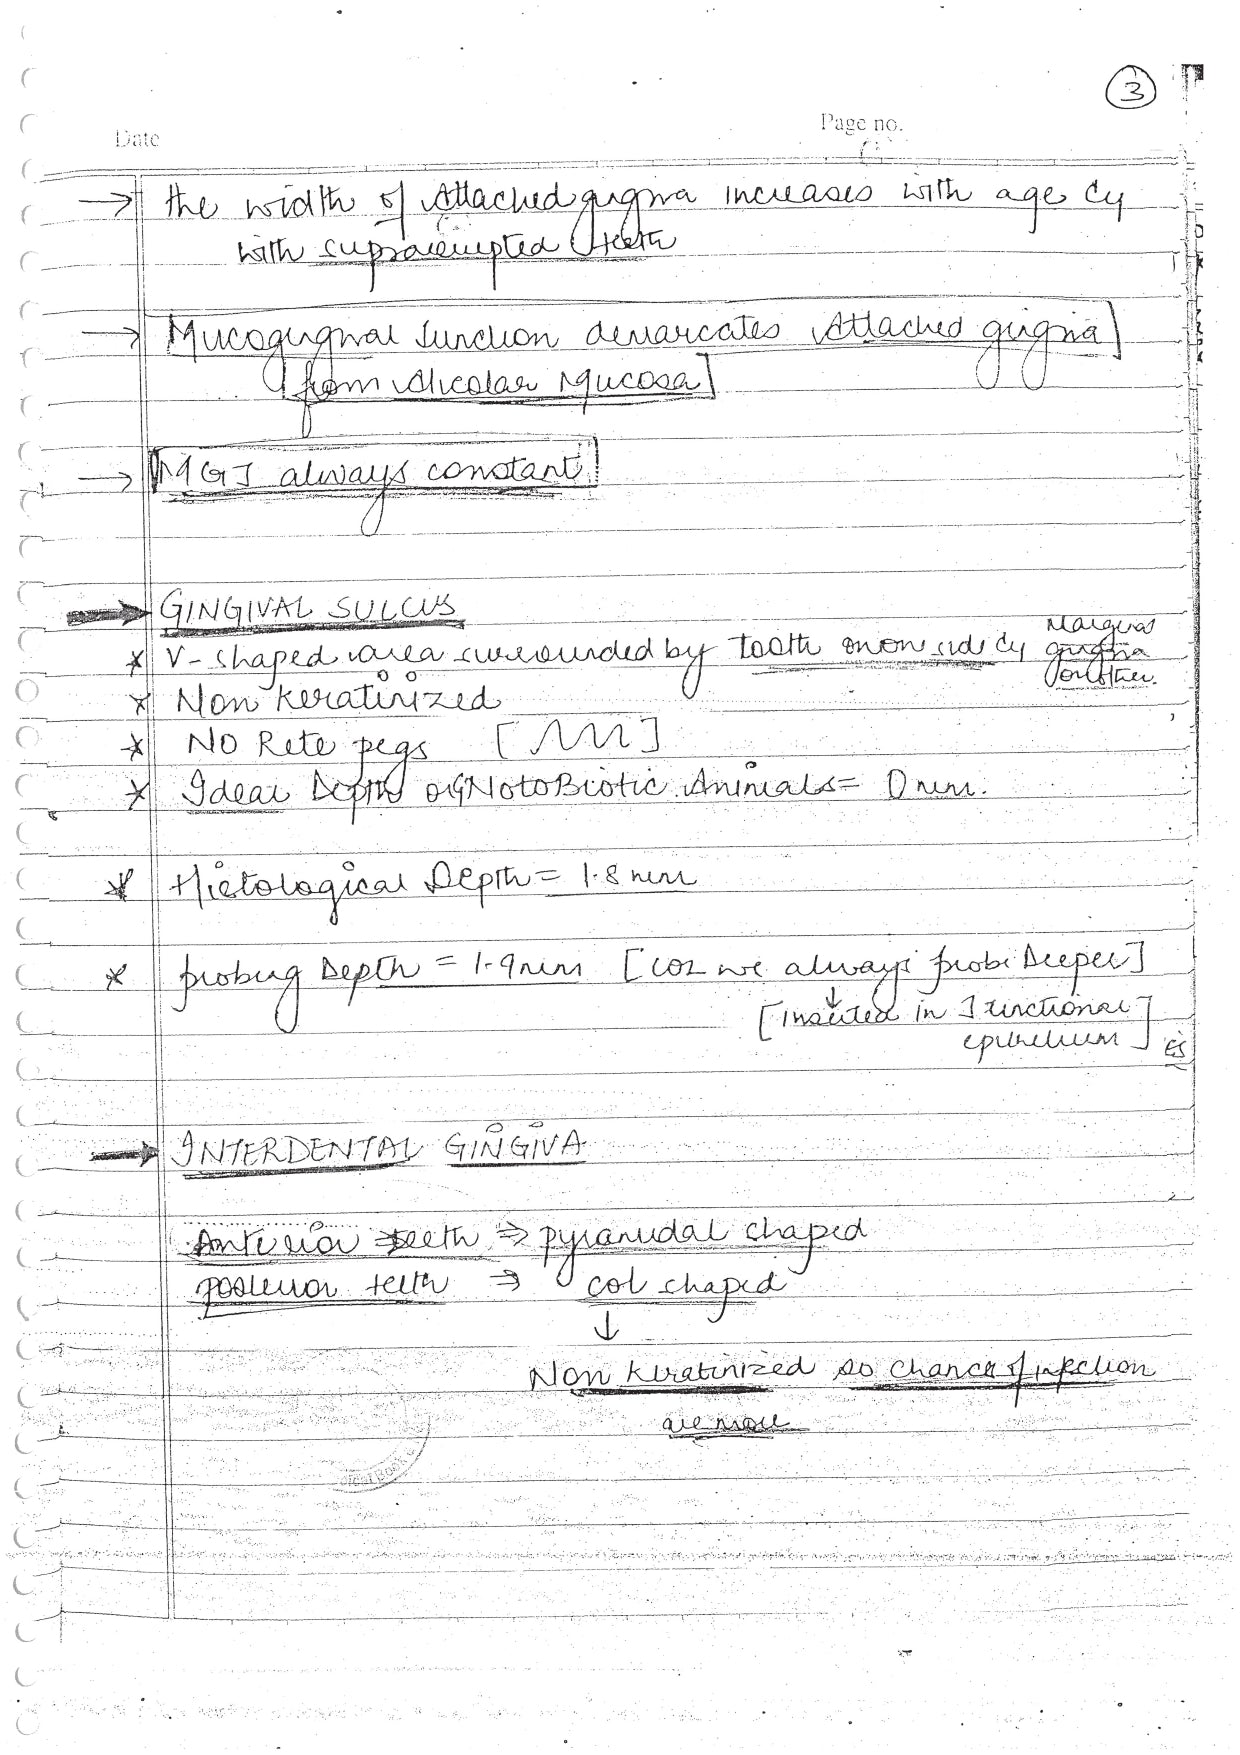 3
Date
Page no.
→ the width of Attached gingiva increases with age &
with supraerupted teeth
→ Mucogingival Junction demarcates Attached gingiva]
[from Alveolar Mucosa]
→ MGJ always constant
→ GINGIVAL SULCUS
* V-shaped area surrounded by Tooth on one side & Marginal gingiva on other.
* Non keratinized
* NO Rete pegs [ ]
* Ideal Depth or GNotoBiotic Animals = 0 mm.
* Histological Depth = 1.8 mm
* probing Depth = 1.9 mm [coz we always probe Deeper]
↓
[inserted in Junctional
epithelium]
→ INTERDENTAL GINGIVA
Anterior teeth ⇒ pyramidal shaped
posterior teeth ⇒ col shaped
↓
Non keratinized so chances of infection
are more